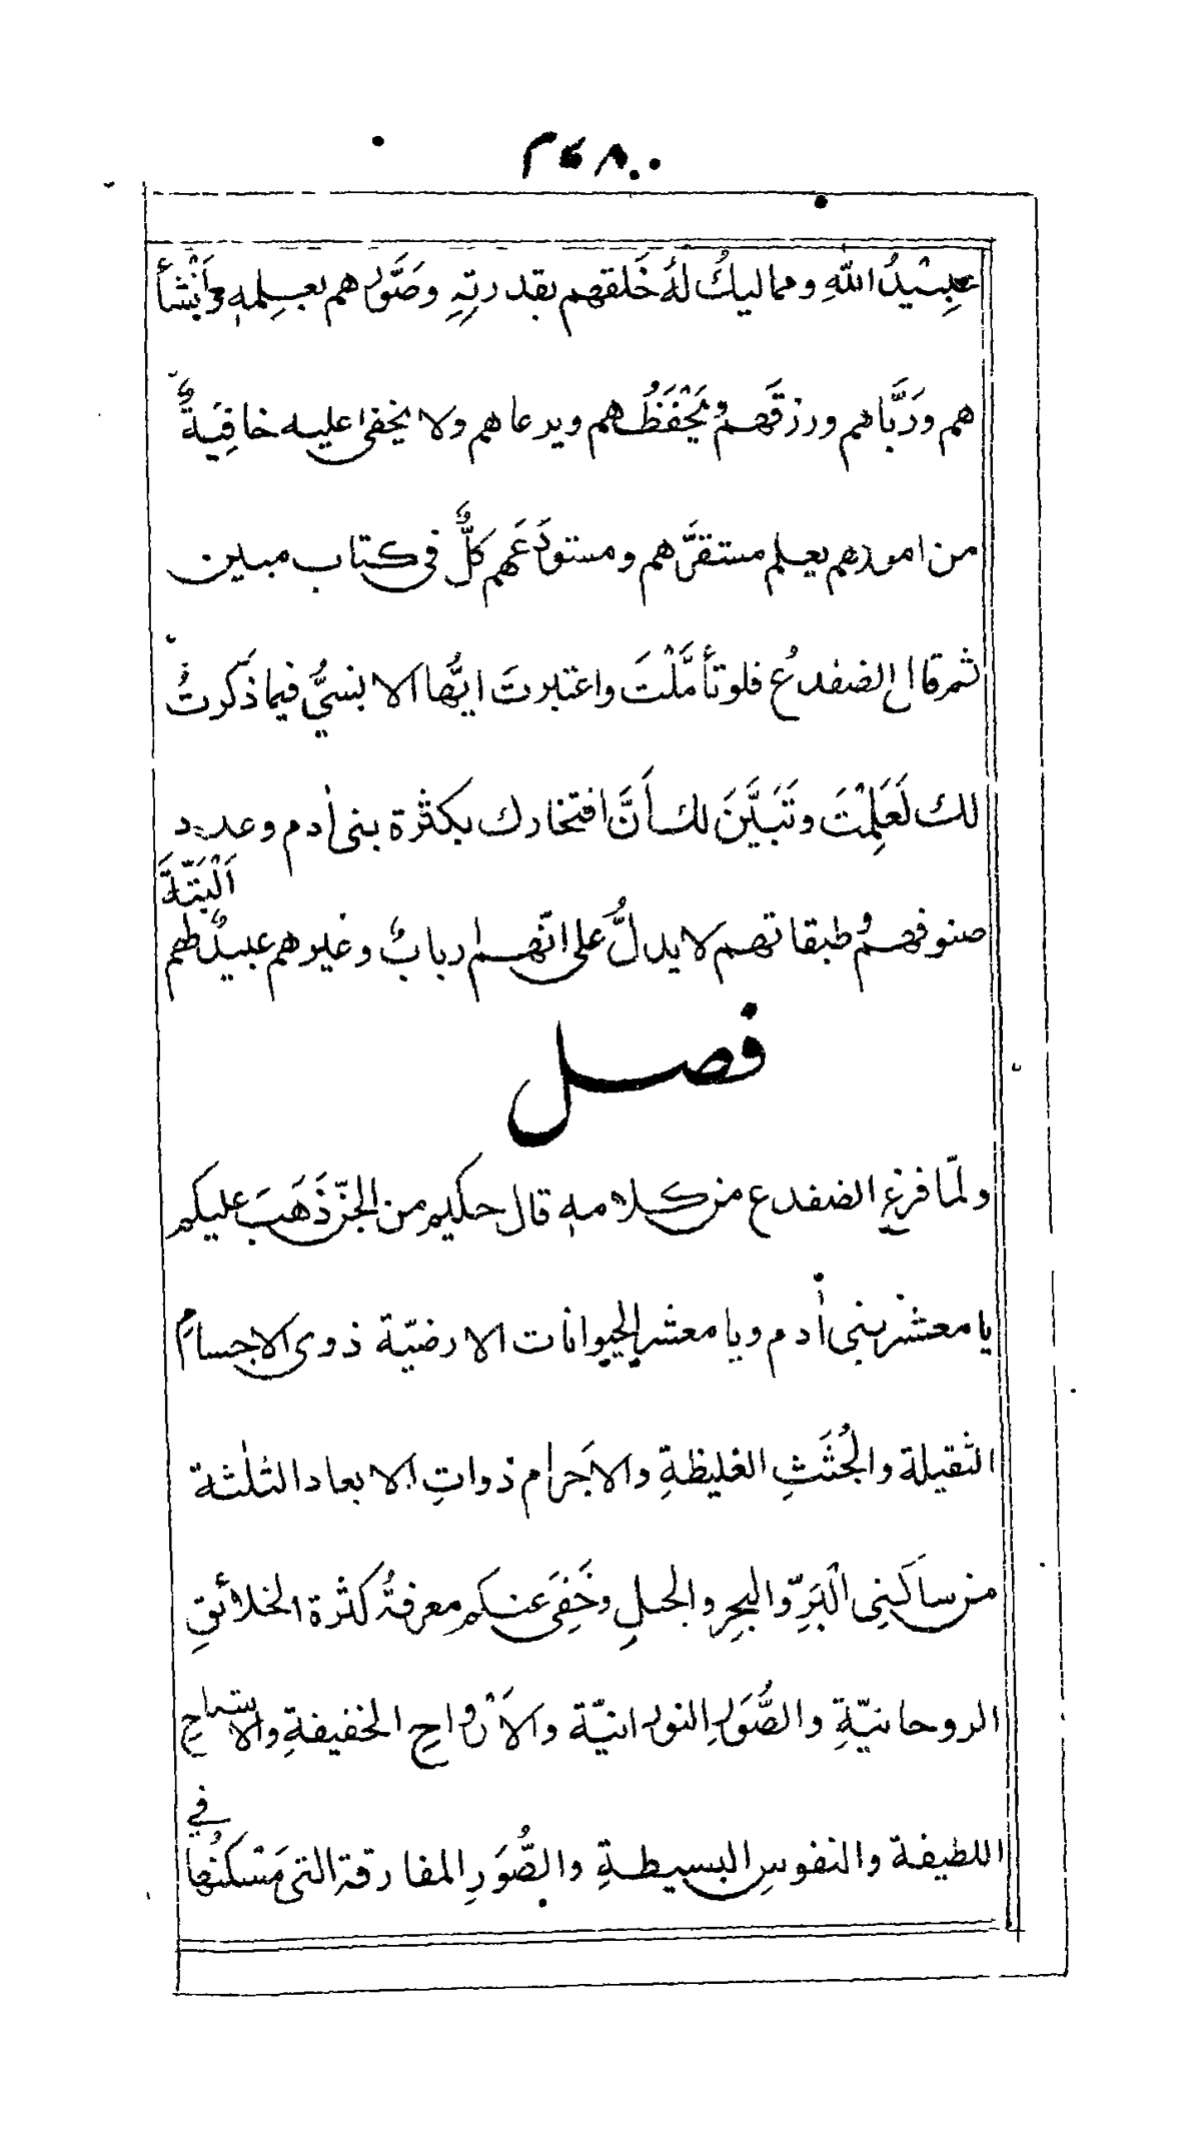 عبيدُ اللهِ ومماليكُ لهُ خَلقهم بقدرتِهِ وصَوَّرهم بعِلمهٖ وأَنْشأ
هم ورَبَّاهم ورزقَهم ويَحْفَظُهم ويرعاهم ولا يخفى عليه خافِيَةٌ
من امورهم يعلم مستقرَّهم ومستودَعَهم كلٌّ فى كتاب مبين
ثم قال الضفدعُ فلو تأمَّلْتَ واعتبرتَ ايُّها الانسيُّ فيما ذَكرتُ
لك لَعَلِمْتَ وتَبَيَّنَ لك أَنَّ افتخارك بكثرة بنى أدم وعدد
صنوفهم وطبقاتهم لا يدلُّ على انّهم اربابٌ وغيرهم عبيدٌ لهم اَلْبَتَّةَ
فصل
ولمّا فرغ الضفدع من كلامهٖ قال حكيم من الجنّ ذَهَبَ عليكم
يا معشر بنى أدم ويا معشر الحيوانات الارضيّة ذوى الاجسامِ
الثقيلة والجُثَثِ الغليظةِ والاَجرام ذواتِ الابعاد الثلٰثة
من ساكنِى الْبَرِّ والبحرِ والجبلِ وخَفِىَ عنكم معرفةُ كثرة الخلائقِ
الروحانيّةِ والصُّوَرِ النورانيّة والاَرْواحِ الخفيفةِ والاشباحِ
اللطيفة والنفوسِ البسيطةِ والصُّوَرِ المفارقة التى مَسْكنُها في